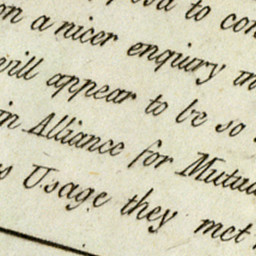 to con
on a nicer enquiry
will appear to be so
in Alliance for Mutua
Usage they met